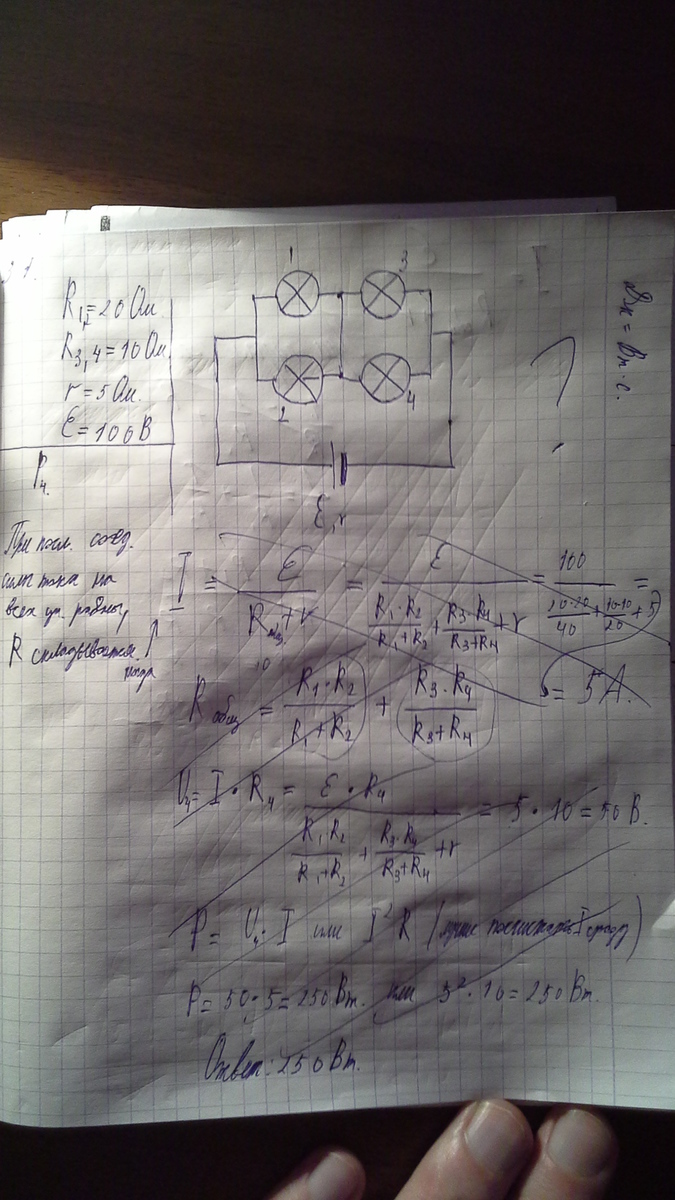 1
3
R₁,₂=20 Ом
R₃,₄=10 Ом
r=5 Ом.
Ɛ=100 В
P₄
2
4
Ɛ, r
?
Дж = Вт·с.
При посл. соед.
силы тока на
всех уч. равны,
R складывается.
I = Ɛ / (R + r) = Ɛ / (R₁·R₂/(R₁+R₂) + R₃·R₄/(R₃+R₄) + r) = 100 / (20·20/40 + 10·10/20 + 5) =
= 5 А.
10
R общ = R₁·R₂/(R₁+R₂) + R₃·R₄/(R₃+R₄)
U₄ = I·R₄ = Ɛ·R₄ / (R₁·R₂/(R₁+R₂) + R₃·R₄/(R₃+R₄) + r) = 5·10 = 50 В.
P = U₄·I или I²R (лучше посчитать I сразу)
P = 50·5 = 250 Вт. или 5²·10 = 250 Вт.
Ответ: 250 Вт.